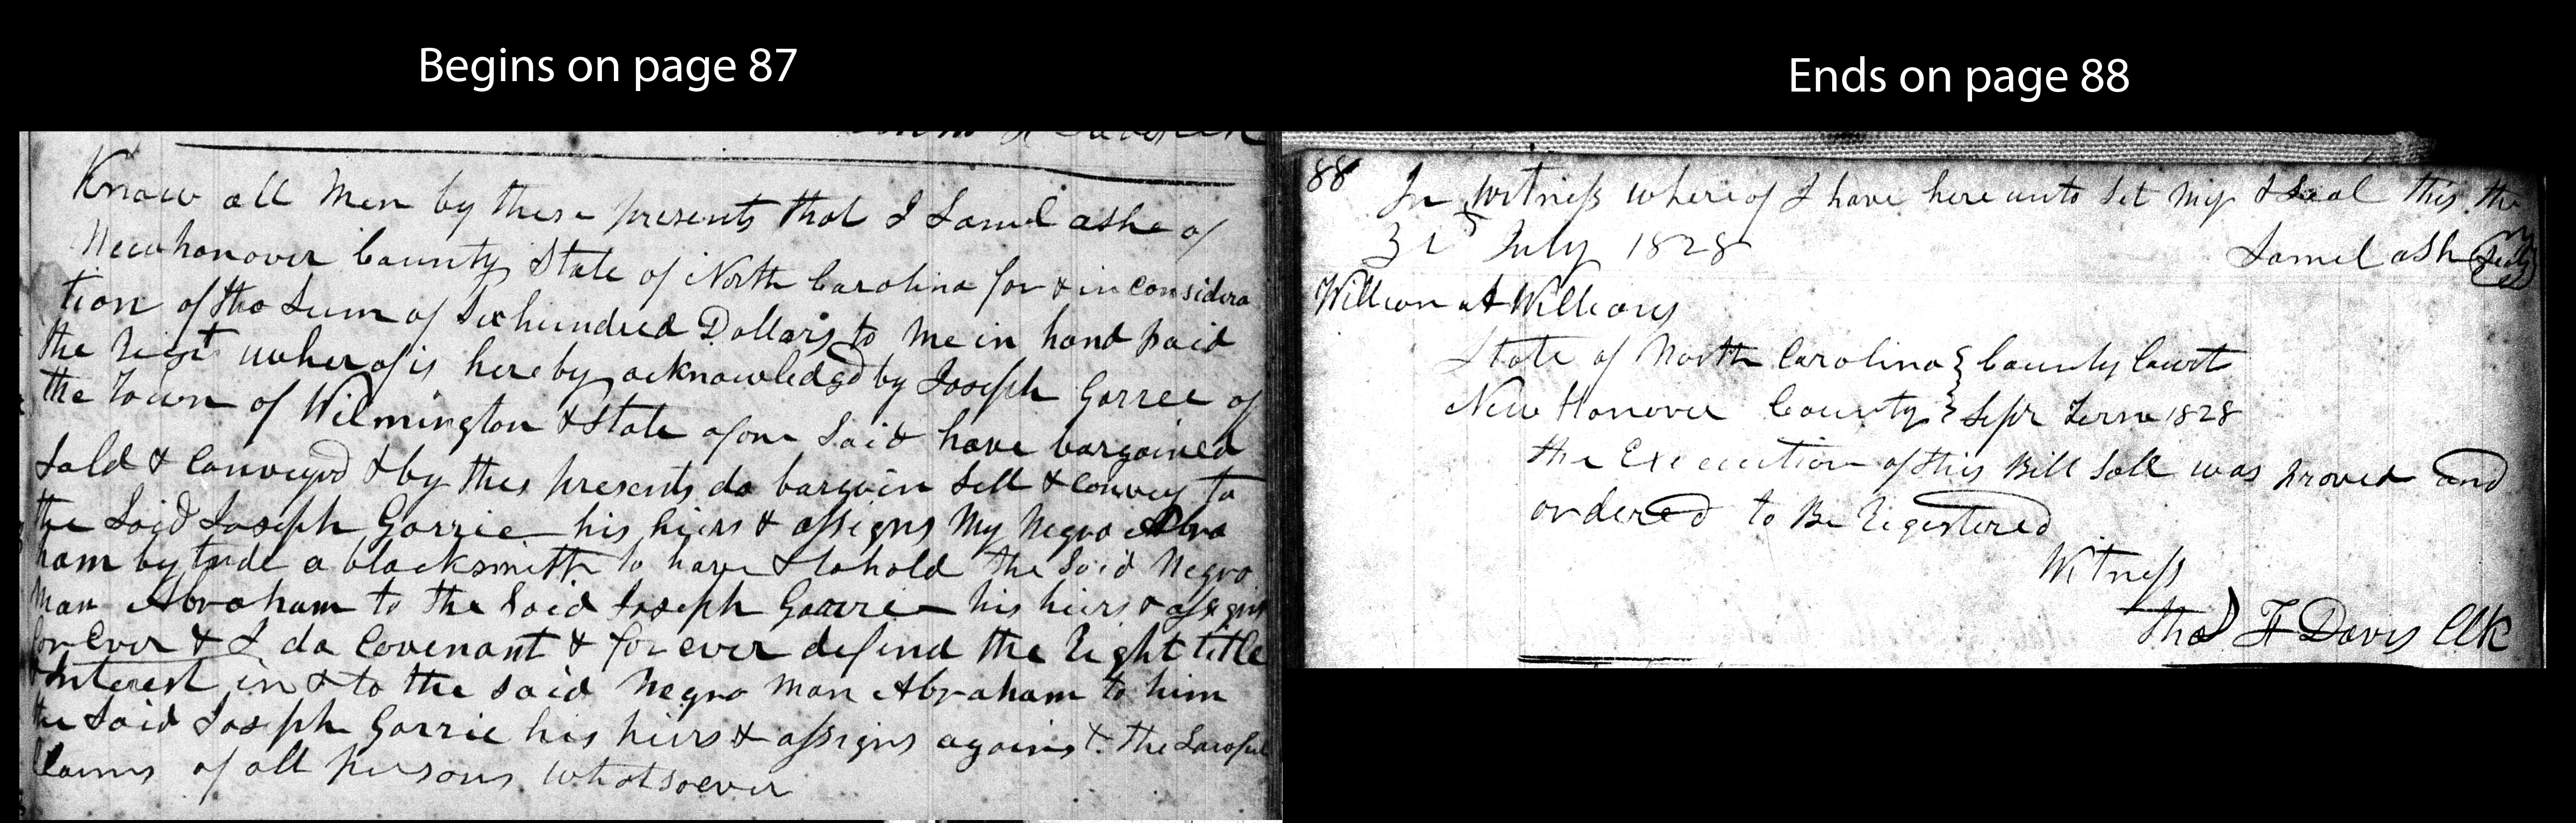 Begins on page 87
Know all Men by these presents that I Samel ashe of
Newhanover County State of North Carolina for & in considera
tion of the Sum of Six hundred Dollars to me in hand paid
the whereof is hereby acknowledgd by Joseph Garree of
the Town of Wilmington & State afore Said have bargained
Sold & Conveyed & by thes presents do bargain Sell & convey to
the Said Joseph Garrie his hiers & assigns My Negro Abra
ham by trade a blacksmith to have & to hold the Said Negro
Man Abraham to the Said Joseph Garrie his hiers & assigns
for Ever & I do Covenant & for ever defend the Right title
& Interest in & to the said Negro Man Abraham to him
the Said Joseph Garrie his hiers & assigns against the Lawful
Claims of all persons whatsoever
Ends on page 88
88 In Witness whereof I have here unto Set my & Seal this the
31st July 1828
Samel ash Seal
William A Williams
State of North Carolina } County Court
New Hanover County } Sepr Term 1828
the Execution of this Bill Sale was proved and
ordered to Be Registered
Witness
Thos F Davis Clk